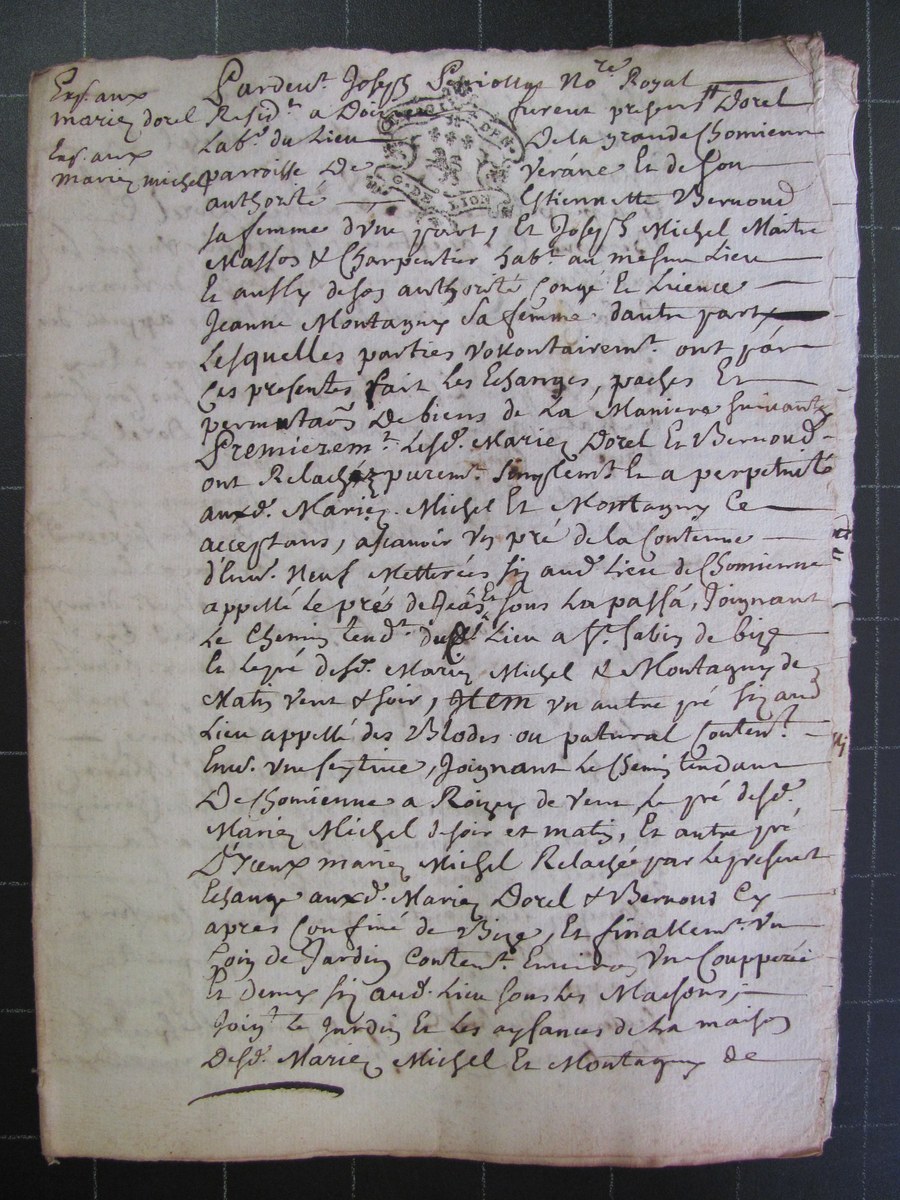 Exp. aux
mariez dorel
Exp. aux
mariez michel
Pardevt. Joseph Peiolly Nore Royal
Residt. a Doi furent presens Dorel
Labr. du Lieu De la grande Chomienne
parroisse De Verane Et de son
authorité Estiennette Bernoud
sa femme d'vne part, Et Joseph Michel Maitre
Masson & Charpentier habt. au mesme Lieu
Et aussy de son authorité Congé Et Licence
Jeanne Montagny Sa femme d'autre part
Lesquelles parties vollontairemt. ont par
Ces presentes fait Les Echanges, paches Et
permutaõn De biens de La Maniere suivante
Premieremt. Lesd. Mariez Dorel Et Bernoud
ont Relachéz puremt. Simplemt Et a perpetuité
auxd. Mariez Michel Et Montagny Ce
acceptans, ascavoir vn pré de la Contenue
d'Envn. Neuf Metterées sis aud Lieu de Chomienne
appellé Le prés de sous La passá, Joignant
Le Chemin tendt. dud Lieu a St. Sabin de bize
Et le pré desd. Mariez Michel & Montagny de
Matin vent & soir, Item vn autre pré sis aud
Lieu appellé des Blodes ou patural Content.
Envn. vne seytive, Joignant Le Chemin tendant
De Chomienne a Roizey de vent Le pré desd.
Mariez Michel de soir et matin, Et autre pré
D'Iceux mariez Michel Relachée par Le present
Echange auxd. Mariez Dorel & Bernoud Cy
apres Confiné de Bize, Et finallemt. vn
Coin de Jardin Content. Environ vne Coupperée
Et demy sis aud. Lieu sous Les Maisons,
Joigt. Le Jardin Et Les aysances de La maison
Desd. Mariez Michel Et Montagny de